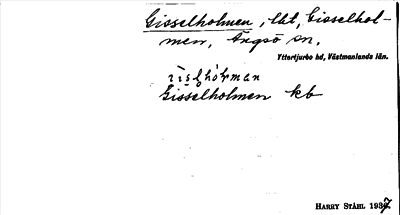 Gisselholmen, lht, Gisselhol-
men, Ängsö sn,
Yttertjurbo hd, Västmanlands län.
Gisselholmen kb
HARRY STÅHL 1937.